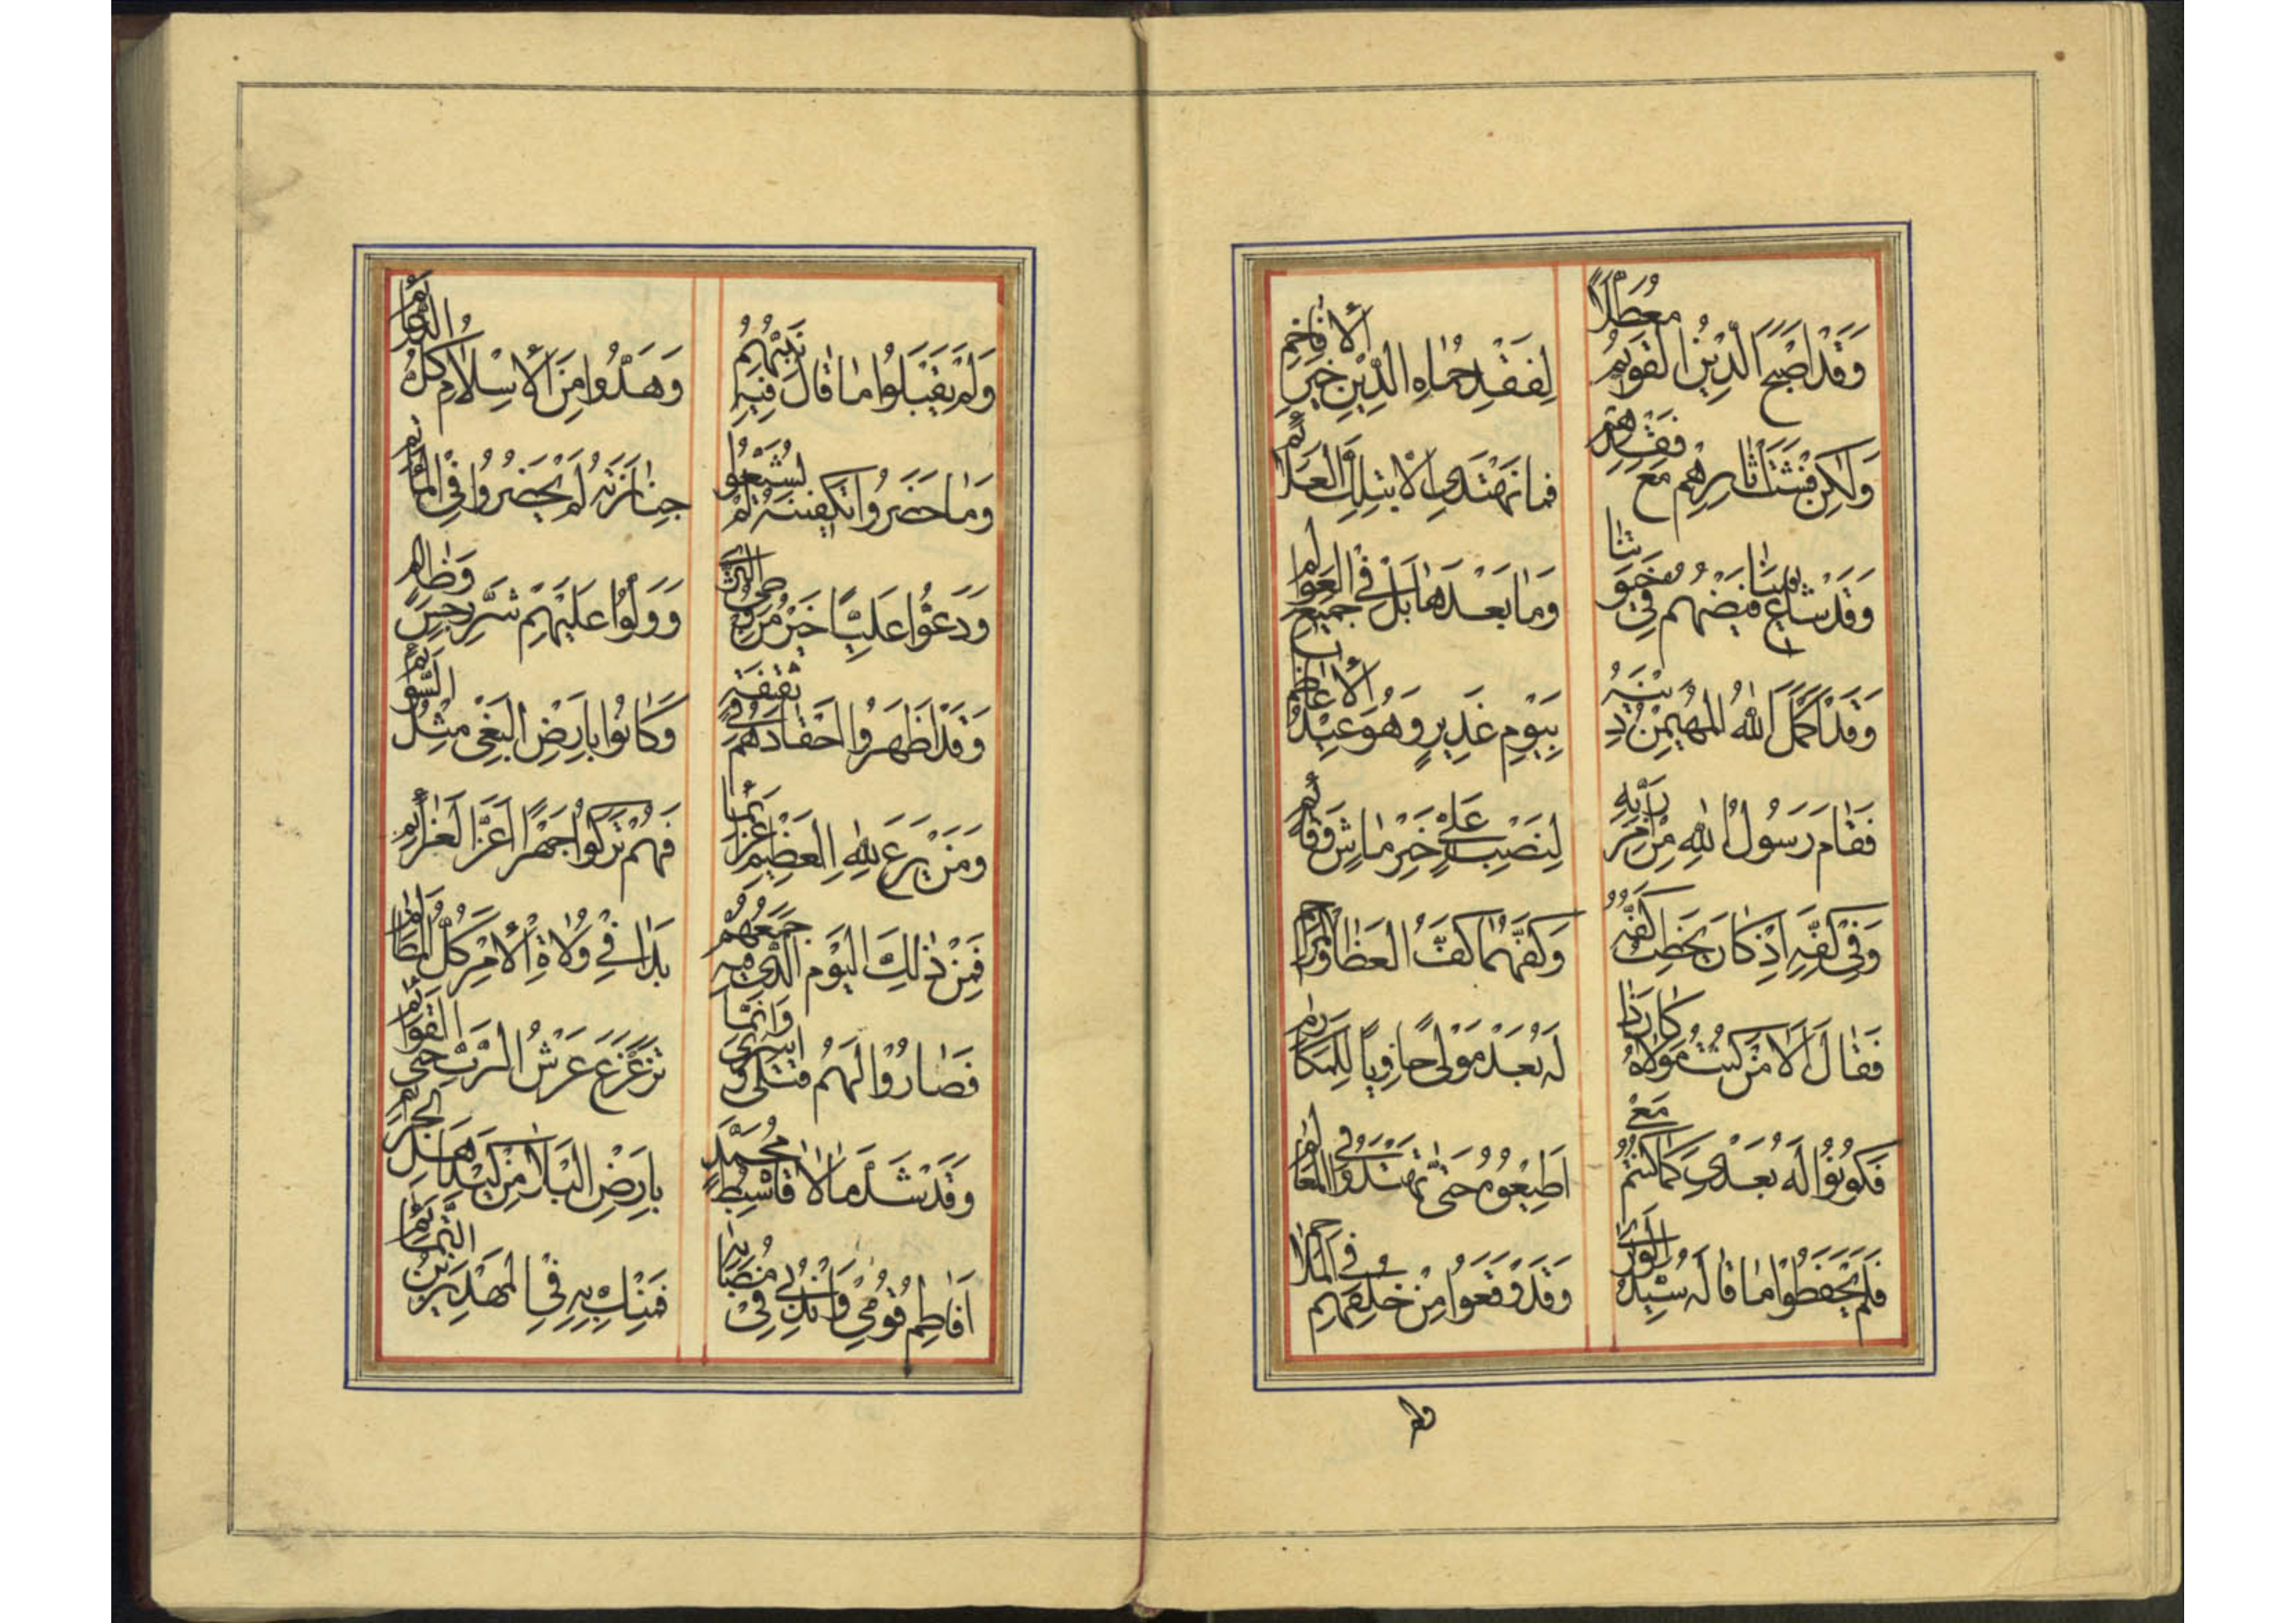 وَقَدْ اَصْبَحَ الدِّيْنُ القَوِيْمُ مُعَطَّلًا
لِفَقْدِ حُمَاةِ الدِّيْنِ خَيْرِ الْأَفَاخِمِ
وَلٰكِنْ فَشَتْ اٰثَارُهُمْ مَعَ فَقْدِهِمْ
فَمَا نَهْتَدِىْ اِلَّا بِتِلْكَ الْعَلَائِمِ
وَقَدْ شَاعَ فَيْضُهُمْ فِىْ
وَمَا بَعْدَهَا بَلْ فِى جَمِيْعِ الْعَوَالِمِ
وَقَدْ اَكْمَلَ اللّٰهُ الْمُهَيْمِنُ دِيْنَهُ
بِيَوْمِ غَدِيْرٍ وَهُوَ عِيْدُ الْأَعَاظِمِ
فَقَامَ رَسُوْلُ اللّٰهِ مِنْ اَمْرِ رَبِّهِ
لِنَصْبِ عَلِىٍّ خَيْرِ مَاشٍ وَقَائِمِ
وَفِىْ كَفِّهِ اِذْ كَانَ يَخْطُبُ كَفُّهُ
وَكَفُّهُمَا كَفُّ الْعَطَا وَالْمَرَاحِمِ
فَقَالَ اَلَا مَنْ كُنْتُ مَوْلَاهُ كَانَ ذَا
لَهُ بَعْدُ مَوْلًى حَاوِيًا لِلْمَكَارِمِ
فَكُوْنُوْا لَهُ بَعْدِىْ كَمَا كُنْتُمْ مَعِىْ
اَطِيْعُوْهُ حَتّٰى تَهْتَدُوْا فِى الْمَعَالِمِ
فَلَمْ يَحْفَظُوْا مَا قَالَهُ سَيِّدُ الْوَرٰى
وَقَدْ وَقَعُوْا مِنْ خُلْفِهِمْ فِى الْمَلَاحِمِ
وَلَمْ يَقْبَلُوْا مَا قَالَ فِيْهِ نَبِيُّهُمْ
وَهَدُّوْا مِنَ الْإِسْلَامِ كُلَّ الدَّعَائِمِ
وَمَا حَضَرُوْا تَكْفِيْنَهُ لَمْ يُشَيِّعُوْا
جِنَازَتَهُ لَمْ يَحْضُرُوْا فِى الْمَاٰتِمِ
وَدَعُّوْا عَلِيًّا خَيْرَ مَنْ وَطِئَ الثَّرٰى
وَوَلَّوْا عَلَيْهِمْ شَرَّ رِجْسٍ وَظَالِمِ
وَقَدْ اَظْهَرُوْا اَحْقَادَهُمْ فِىْ سَقِيْفَةٍ
وَكَانُوْا بِاَرْضِ الْبَغْىِ مِثْلَ السَّوَائِمِ
وَمَنْ يَرْعَ لِلّٰهِ الْعَظِيْمِ عَزَائِمًا
فَهُمْ تَرَكُوْا جَهْرًا اَعَزَّ الْعَزَائِمِ
فَمِنْ ذٰلِكَ الْيَوْمِ الَّذِىْ فِيْهِ جَمْعُهُمْ
بَدَا فِىْ وُلَاةِ الْأَمْرِ كُلُّ الْمَظَالِمِ
فَصَارُوْا لَهُمْ قَتْلٰى وَاَسْرٰى وَاِنَّمَا
تَزَعْزَعَ عَرْشُ الرَّبِّ حَتَّى الْقَوَائِمِ
وَقَدْ شَدَّ مَالًا قَاسِطٌ مُحَمَّدٍ
بِاَرْضِ الْبَلَا مِنْ كَيْدِ اَهْلِ الْجَرَائِمِ
اَفَاطِمُ قُوْمِىْ وَانْدُبِىْ فِىْ مُصَابِهِ
فَمَنْ لَكِ بِهِ فِى الْمَهْدِ بَيْنَ التَّمَائِمِ
فلم